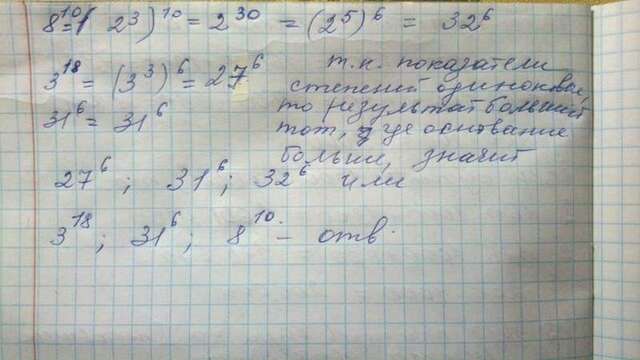 8¹⁰ = (2³)¹⁰ = 2³⁰ = (2⁵)⁶ = 32⁶
3¹⁸ = (3³)⁶ = 27⁶
31⁶ = 31⁶
т.к. показатели
степеней одинаковые,
то результат больший
тот, где основание
больше, значит
27⁶; 31⁶; 32⁶ или
3¹⁸; 31⁶; 8¹⁰ – отв.